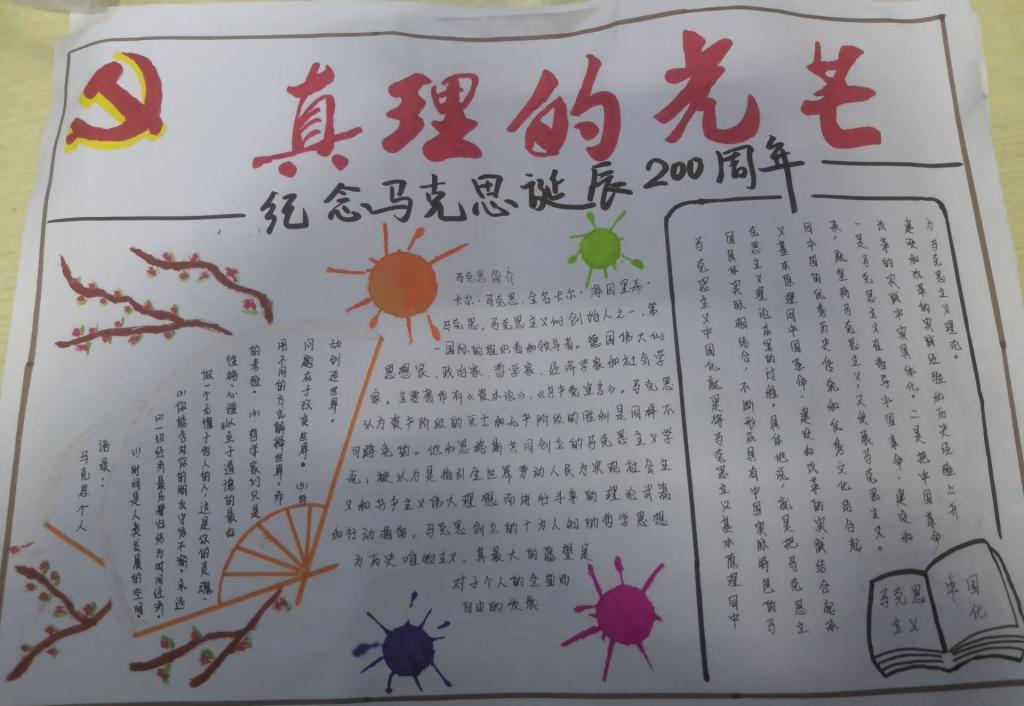 真理的光芒
纪念马克思诞辰200周年
马克思个人
语录：
(1)时间是人类发展的空间.
(2)一切经济最后都归结为时间经济.
(3)你能否对你的朋友守信不渝,永远
做一个无愧于他人的人,这是你的灵魂、
性格、心理以至于道德的最好
的考验。(4)哲学家们只是
用不同的方式解释世界,而
问题在于改变世界。(5)劳
动创造世界.
马克思简介
卡尔·马克思,全名卡尔·海因里希·
马克思,马克思主义的创始人之一,第
一国际的组织者和领导者。德国伟大的
思想家、政治家、哲学家、经济学家和社会学
家。主要著作有《资本论》、《共产党宣言》。马克思
认为资产阶级的灭亡和无产阶级的胜利是同样不
可避免的。他和恩格斯共同创立的马克思主义学
说,被认为是指引全世界劳动人民为实现社会主
义和共产主义伟大理想而进行斗争的理论武器
和行动指南。马克思创立的广为人知的哲学思想
为历史唯物主义,其最大的愿望是
对于个人的全面而
自由的发展
马克思主义中国化就是将马克思主义基本原理同中
国具体实际相结合,不断形成具有中国实际特色的马
克思主义理论成果的过程。具体地说,就是把马克思主
义基本原理同中国革命、建设和改革的实践结合起来
同中国的优秀历史传统和优秀文化结合起
来,既坚持马克思主义,又发展马克思主义。
一是马克思主义在指导中国革命、建设和
改革的实践中实具体化。二是把中国革命、
建设和改革的实践经验和历史经验上升
为马克思主义理论。
马克思
主义
中国
化